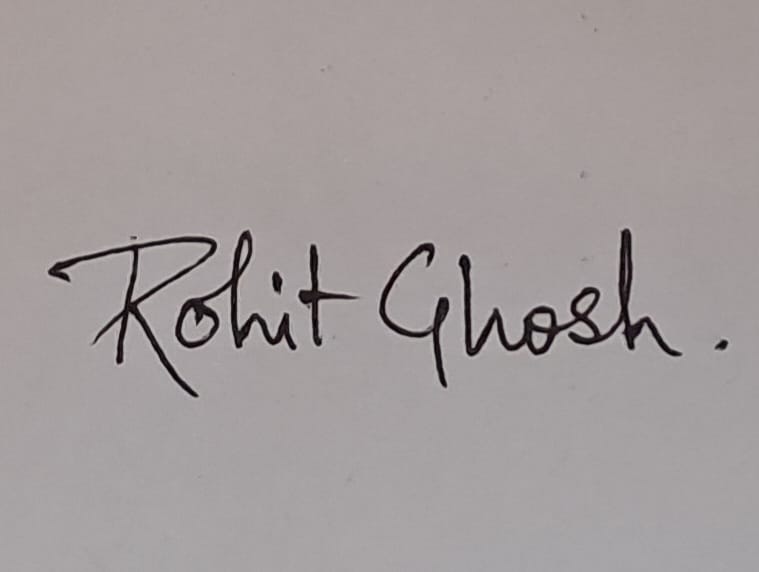 Rohit Ghosh.